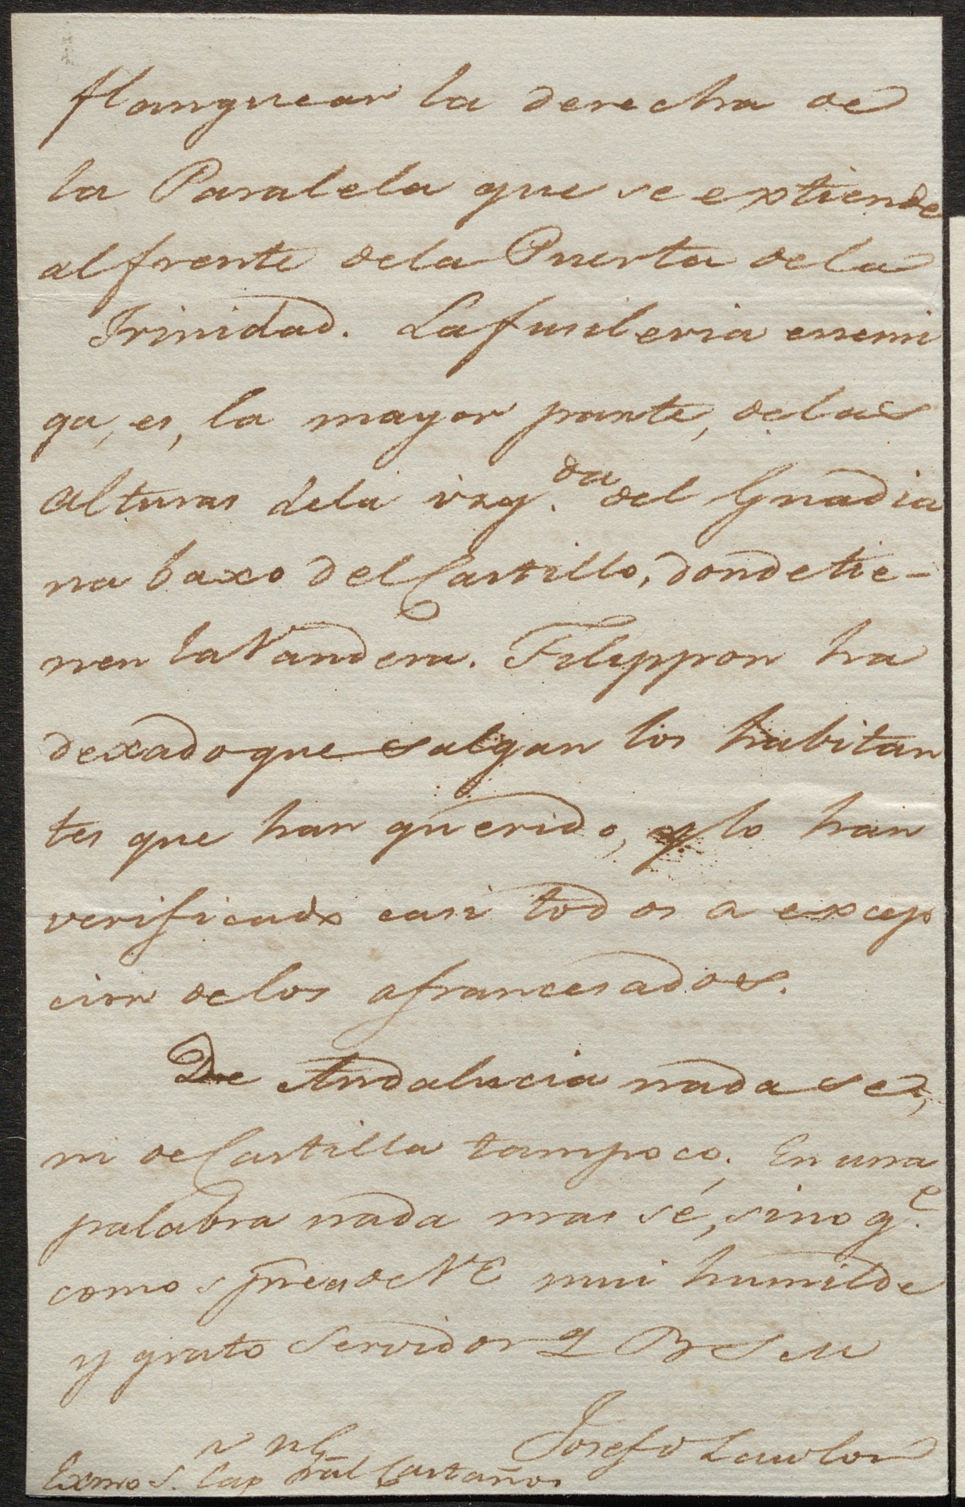 flanquear la derecha de
la Paralela que se extiende
al frente dela Puerta dela
Trinidad. La fusileria enemi
ga, es, la mayor parte, delas
alturas dela izq.da del Guadia
na baxo del Castillo, donde tie-
nen la Vandera. Filippon ha
dexado que salgan los habitan
tes que han querido, y lo han
verificado casi todos a excep
cion delos afrancesados.
De Andalucia nada se,
ni de Castilla tampoco. En una
palabra nada mas sé, sino q.e
como spre es de VE mui humilde
y grato servidor q B S M
Josef O Lawlor
Exmo S.r Cap Gral Castaños